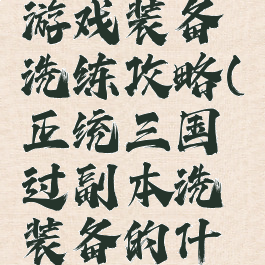 游戏装备
洗练攻略(
正统三国
过副本洗
装备的什